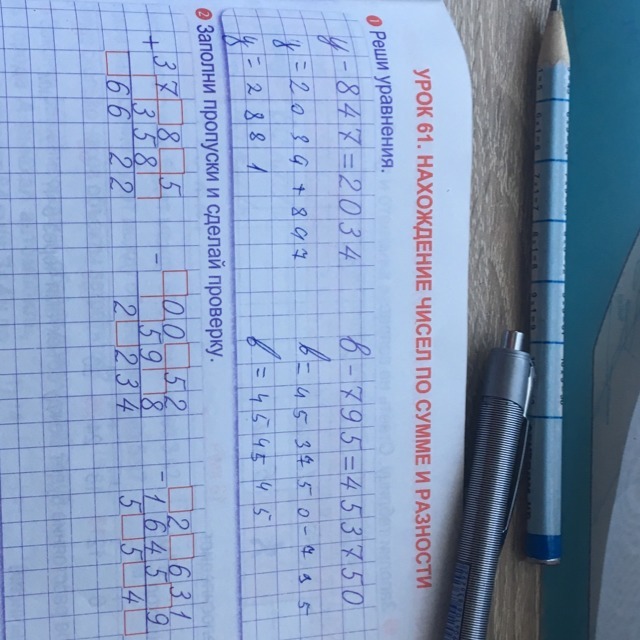 УРОК 61. НАХОЖДЕНИЕ ЧИСЕЛ ПО СУММЕ И РАЗНОСТИ
1 Реши уравнения.
y - 847 = 2034 b - 795 = 453750
y = 2034 + 847 b = 453750 - 795
y = 2881 b = 454545
2 Заполни пропуски и сделай проверку.
+ 37□8□5 - □00□52 - □2□631
□358□ 59□8 1645□9
□66□22 2□234 5□5□4□